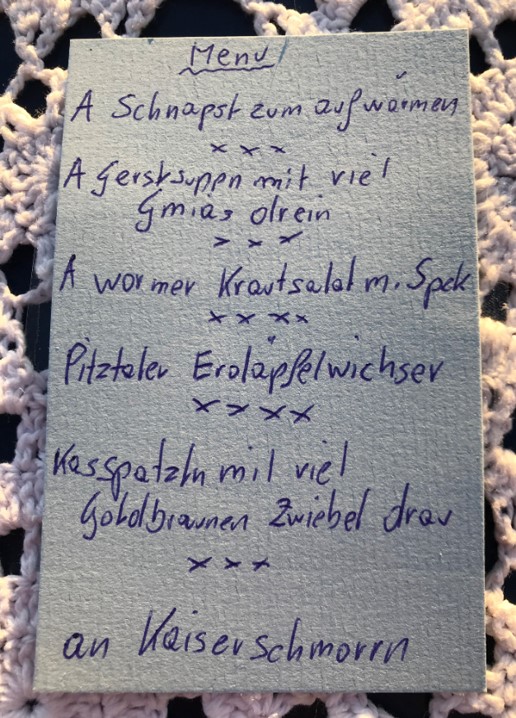 Menu
A Schnapsl zum aufwärmen
x x x
A Gerstsuppn mit viel
Gmias drein
x x x
A wormer Krautsalat m. Spek
x x x x
Pitztaler Erdäpfelwichser
x x x x
Kasspatzln mit viel
Goldbraunen Zwiebel drau
x x x
an Kaiserschmorrn